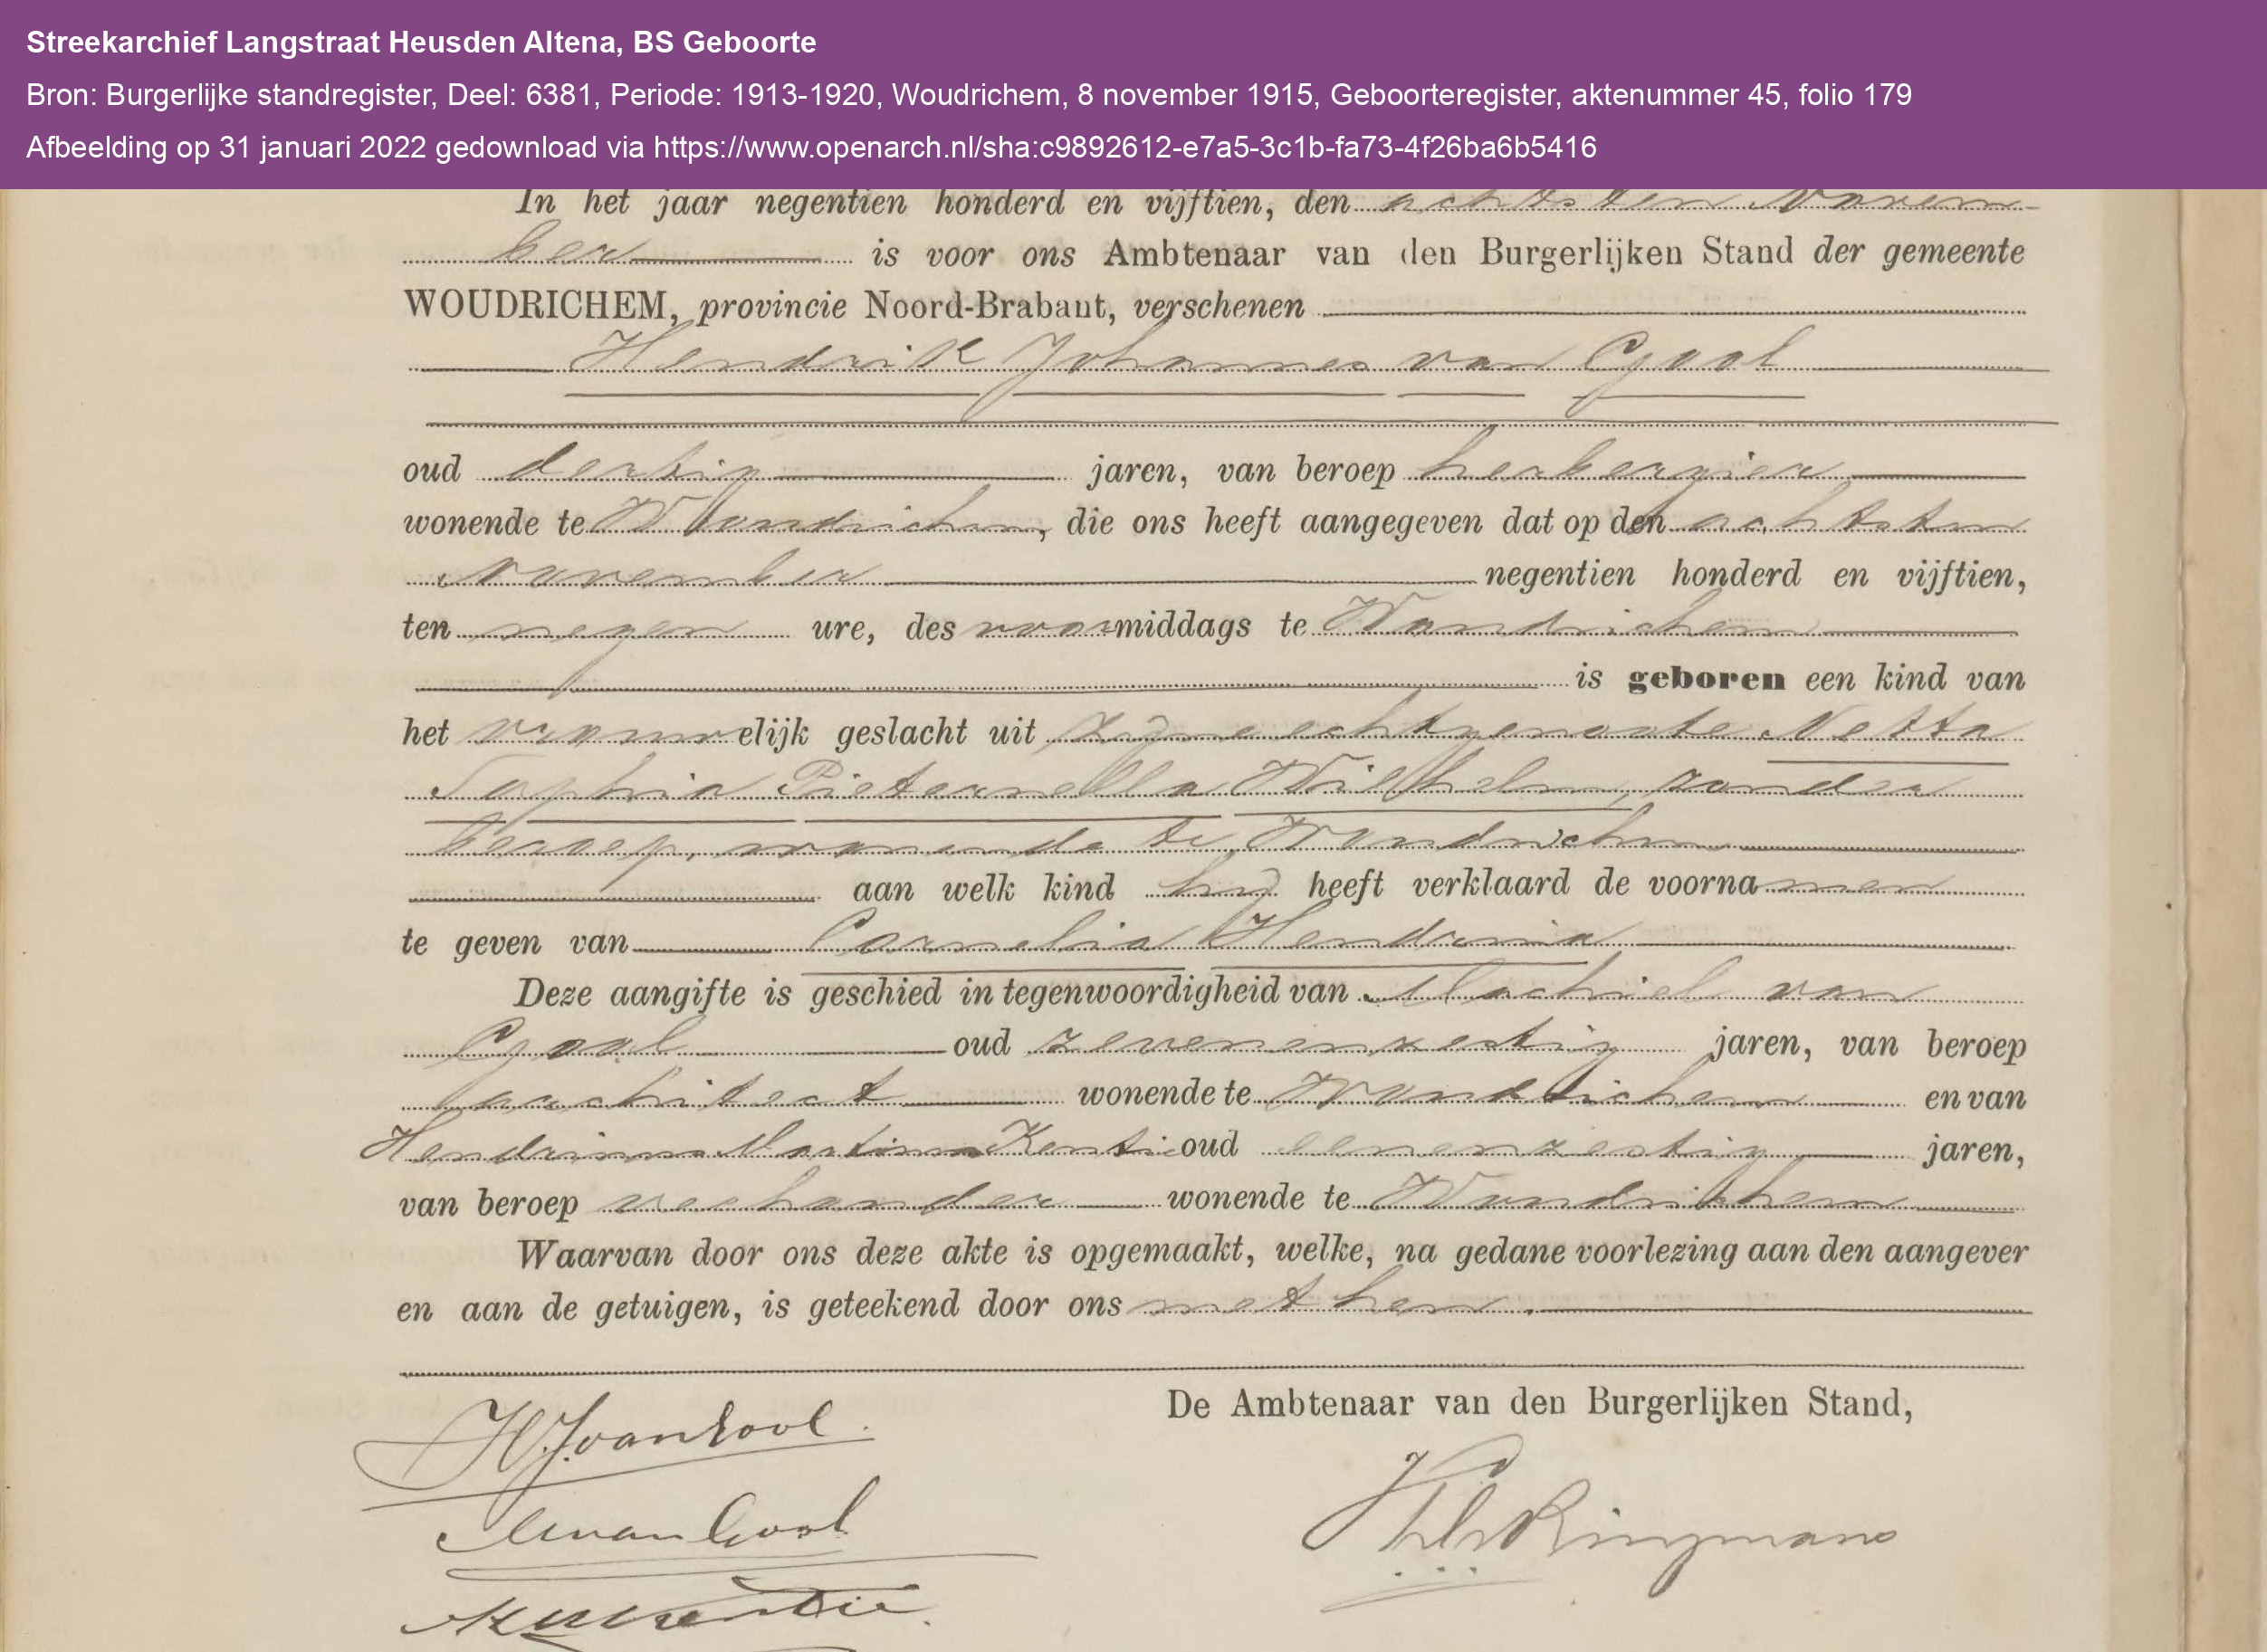 Streekarchief Langstraat Heusden Altena, BS Geboorte
Bron: Burgerlijke standregister, Deel: 6381, Periode: 1913-1920, Woudrichem, 8 november 1915, Geboorteregister, aktenummer 45, folio 179
Afbeelding op 31 januari 2022 gedownload via https://www.openarch.nl/sha:c9892612-e7a5-3c1b-fa73-4f26ba6b5416
In het jaar negentien honderd en vijftien, den achtsten Novem-
ber is voor ons Ambtenaar van den Burgerlijken Stand der gemeente
WOUDRICHEM, provincie Noord-Brabant, verschenen
Hendrik Johannes van Gool
oud dertig jaren, van beroep herbergier
wonende te Woudrichem, die ons heeft aangegeven dat op den achtsten
November negentien honderd en vijftien,
ten negen ure, des voormiddags te Woudrichem
is geboren een kind van
het vrouwelijk geslacht uit zijne echtgenoote Netta
Sophia Pieternella Wilhelm, zonder
beroep, wonende te Woudrichem
aan welk kind hij heeft verklaard de voornamen
te geven van Cornelia Hendrina
Deze aangifte is geschied in tegenwoordigheid van Machiel van
Gool oud zevenenzestig jaren, van beroep
architect wonende te Woudrichem en van
Hendrinus Martinus Kentie oud eenenzestig jaren,
van beroep veehouder wonende te Woudrichem
Waarvan door ons deze akte is opgemaakt, welke, na gedane voorlezing aan den aangever
en aan de getuigen, is geteekend door ons met hen.
De Ambtenaar van den Burgerlijken Stand,
HJvanGool.
M van Gool
Kentie.